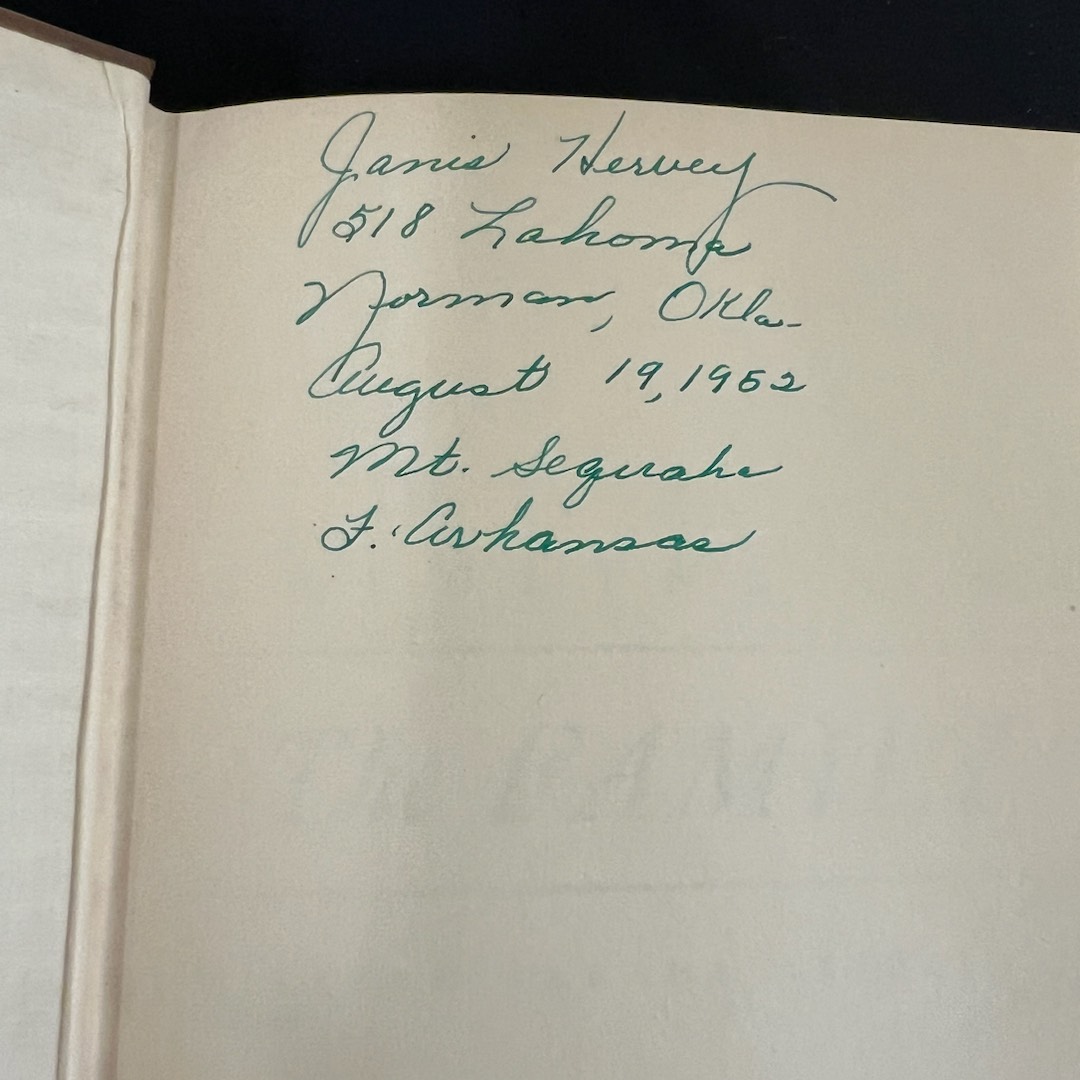 Janis Hervey
518 Lahoma
Norman, Okla.
August 19, 1952
Mt. Sequoahe
F. Arkansas